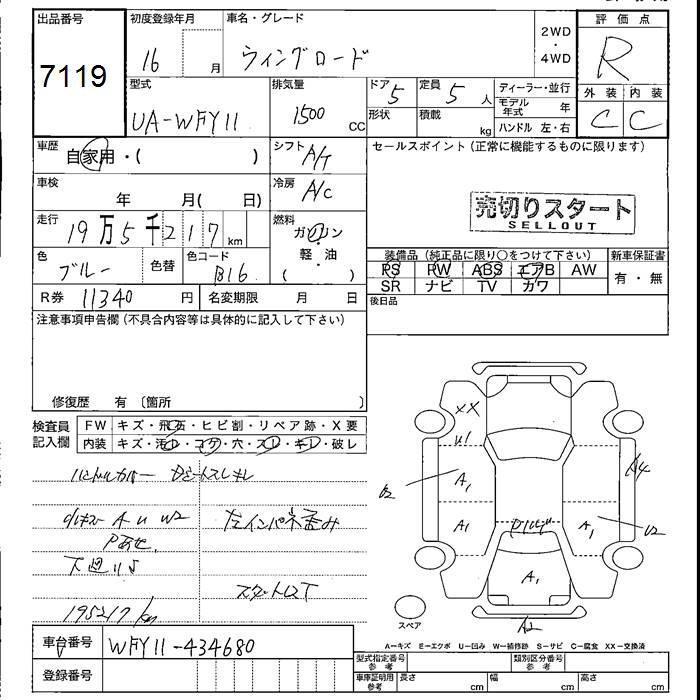 出品番号
7119
初度登録年月
16 月
車名・グレード
ウィングロード
2WD
・
4WD
評価点
R
外装 内装
C C
型式
UA-WFY11
排気量
1500 CC
ドア 5
定員 5 人
形状
積載 kg
ディーラー・並行
モデル年式 年
ハンドル 左・右
車歴
自家用・( )
シフト
A/T
セールスポイント(正常に機能するものに限ります)
車検
年 月( 日)
冷房
A/C
売切りスタート
SELLOUT
走行
19万5千217 km
燃料
ガソリン
・
軽・油
( )
色
ブルー
色替
色コード
B16
装備品(純正品に限り○をつけて下さい)
PS PW ABS エアB AW
SR ナビ TV カワ
新車保証書
有・無
R券 11340 円
名変期限 月 日
後日品
注意事項申告欄(不具合内容等は具体的に記入して下さい)
修復歴 有 〔箇所 〕
検査員
記入欄
FW キズ・飛石・ヒビ割・リペア跡・X要
内装 キズ・汚レ・コゲ・穴・スレ・キレ・破レ
ハンドルカバー
A U W2
左インパネ歪み
Pあせ
下廻りS
195217 km
XX
U1
A1
U2
A1
A4
A1
U2
A1
A2
スペア
A-キズ E-エクボ U-凹み W-補修跡 S-サビ C-腐食 XX-交換済
車台番号
WFY11-434680
登録番号
型式指定番号
参考
類別区分番号
参考
車庫証明用
参考
長さ cm
幅 cm
高さ cm